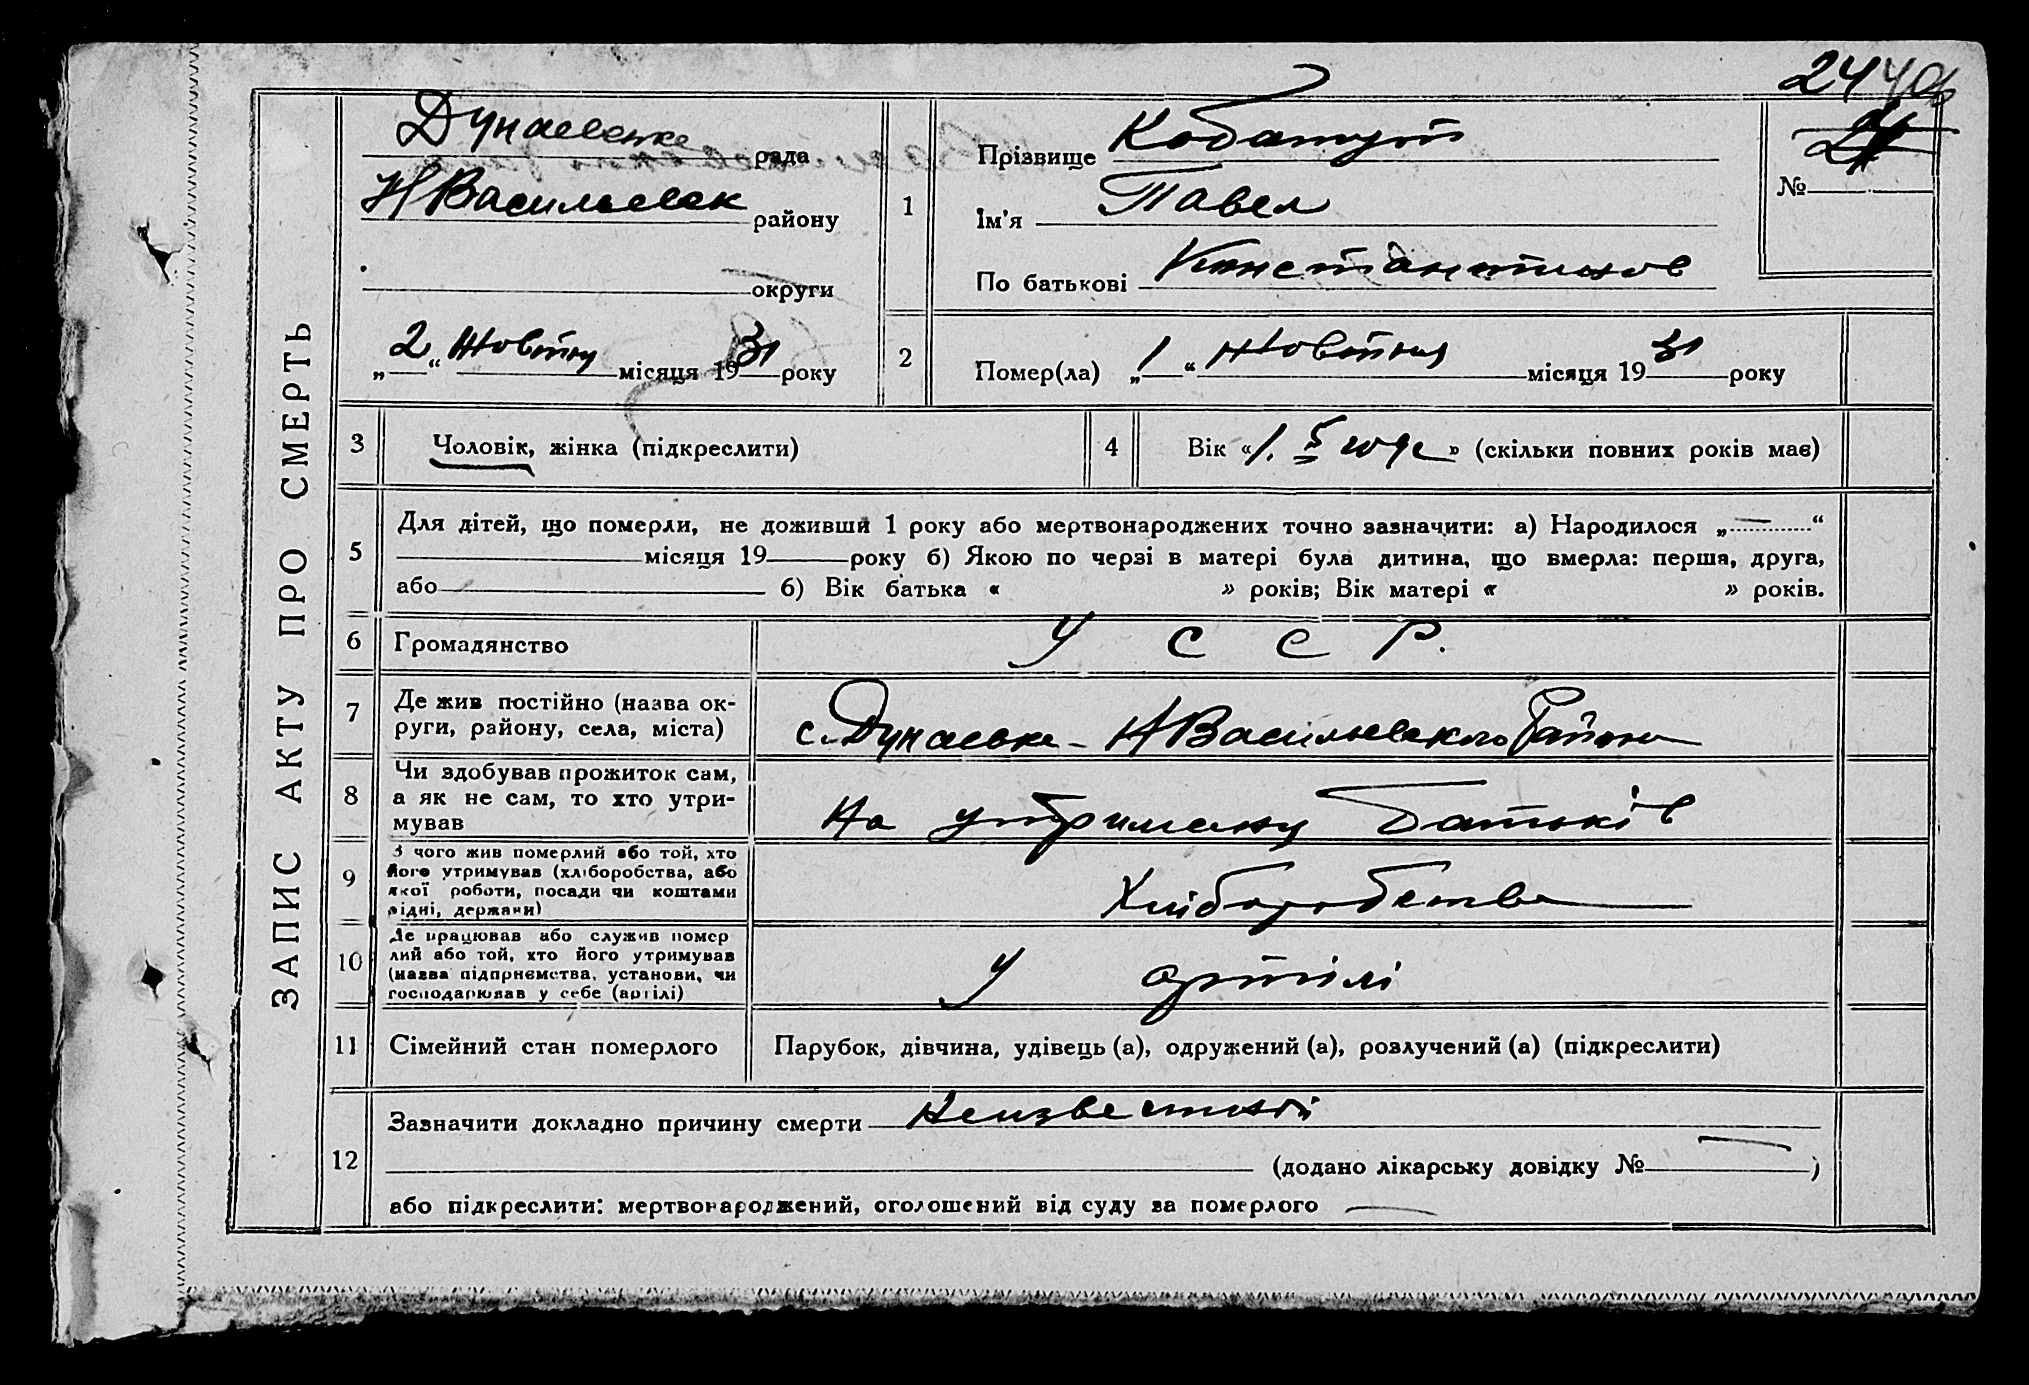 244
ЗАПИС АКТУ ПРО СМЕРТЬ
Дунаевске рада
Н Васильевск району
округи
„2“ Жовтня місяця 1931 року
1
Прізвище
Ім'я Павел
По батькові Константинов
№ 24
2
Помер(ла) „1“ Жовтня місяця 1931 року
3
Чоловік, жінка (підкреслити)
4
Вік « » (скільки повних років має)
5
Для дітей, що померли, не доживши 1 року або мертвонароджених точно зазначити: а) Народилося „—“
місяця 19 року б) Якою по черзі в матері була дитина, що вмерла: перша, друга,
або б) Вік батька « » років; Вік матері « » років.
6
Громадянство
У С С Р.
7
Де жив постійно (назва ок-
руги, району, села, міста)
с. Дунаевка - Н Васильевского Району
8
Чи здобував прожиток сам,
а як не сам, то хто утри-
мував
На утриману батьків
9
З чого жив померлий або той, хто
його утримував (хліборобства, або
якої роботи, посади чи коштами
рідні, держави)
Хліборобства
10
Де працював або служив помер
лий або той, хто його утримував
(назва підприємства, установи, чи
господарював у себе (артілі)
У артілі
11
Сімейний стан померлого
Парубок, дівчина, удівець (а), одружений (а), розлучений (а) (підкреслити)
12
Зазначити докладно причину смерти Неизвестной
(додано лікарську довідку № — )
або підкреслити: мертвонароджений, оголошений від суду за померлого —